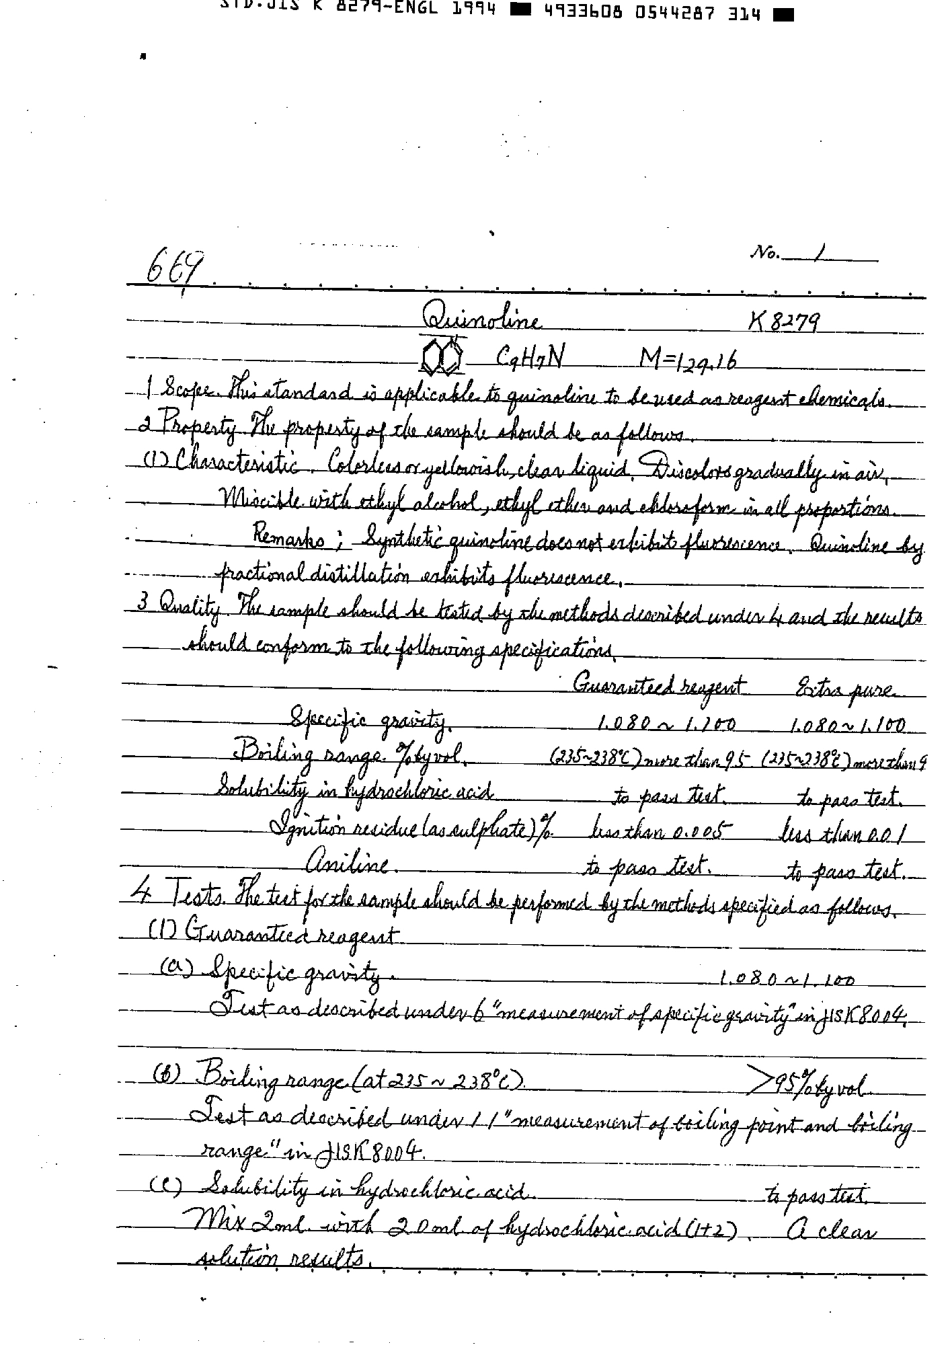 STD.JIS K 8279-ENGL 1994 ■ 4933608 0544287 314 ■
No. 1
669
Quinoline K8279
C9H7N M=129.16
1 Scope. This standard is applicable to quinoline to be used as reagent chemicals.
2 Property. The property of the sample should be as follows.
(1) Characteristic. Colorless or yellowish, clear liquid. Discolors gradually in air.
Miscible with ethyl alcohol, ethyl ether and chloroform in all proportions.
Remarks; Synthetic quinoline does not exhibit fluorescence. Quinoline by
fractional distillation exhibits fluorescence.
3 Quality. The sample should be tested by the methods described under 4 and the results
should conform to the following specifications.
Guaranteed reagent Extra pure
Specific gravity. 1.080~1.100 1.080~1.100
Boiling range. % by vol. (235~238°C) more than 95 (235~238°C) more than 9
Solubility in hydrochloric acid to pass test. to pass test.
Ignition residue (as sulphate) % less than 0.005 less than 0.01
Aniline. to pass test. to pass test.
4 Tests. The test for the sample should be performed by the methods specified as follows.
(1) Guaranteed reagent
(a) Specific gravity. 1.080~1.100
Test as described under 6 "measurement of specific gravity" in JIS K 8004.
(b) Boiling range (at 235~238°C). >95% by vol.
Test as described under 11 "measurement of boiling point and boiling
range" in JIS K 8004.
(c) Solubility in hydrochloric acid. to pass test.
Mix 2ml. with 20ml. of hydrochloric acid (1+2). A clear
solution results.